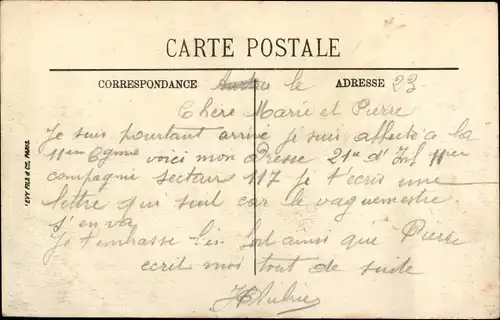 CARTE POSTALE
CORRESPONDANCE le ADRESSE 23
Chère Marie et Pierre
Je suis pourtant arrivé je suis affecté a la
11em Cgnie voici mon adresse 21e d' Inf 11em
compagnie secteur 117 je t'ecris une
lettre qui suit car le vaguemestre
s'en va
Je t'embrasse bien fort ainsi que Pierre
ecrit moi tout de suite
LEVY FILS & CIE, PARIS.